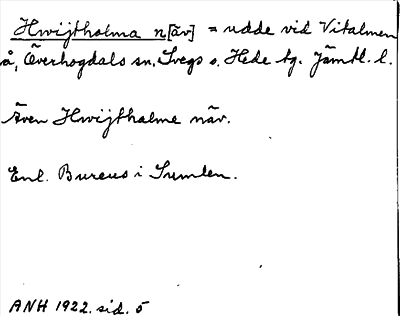 Hwijtholma n[äv] = udde vid Vitalmen
å, Överhogdals sn, Svegs o. Hede tg. Jämtl. l.
Även Hwijthalme näv.
Enl. Bureus i Sumlen.
ANH 1922. sid. 5